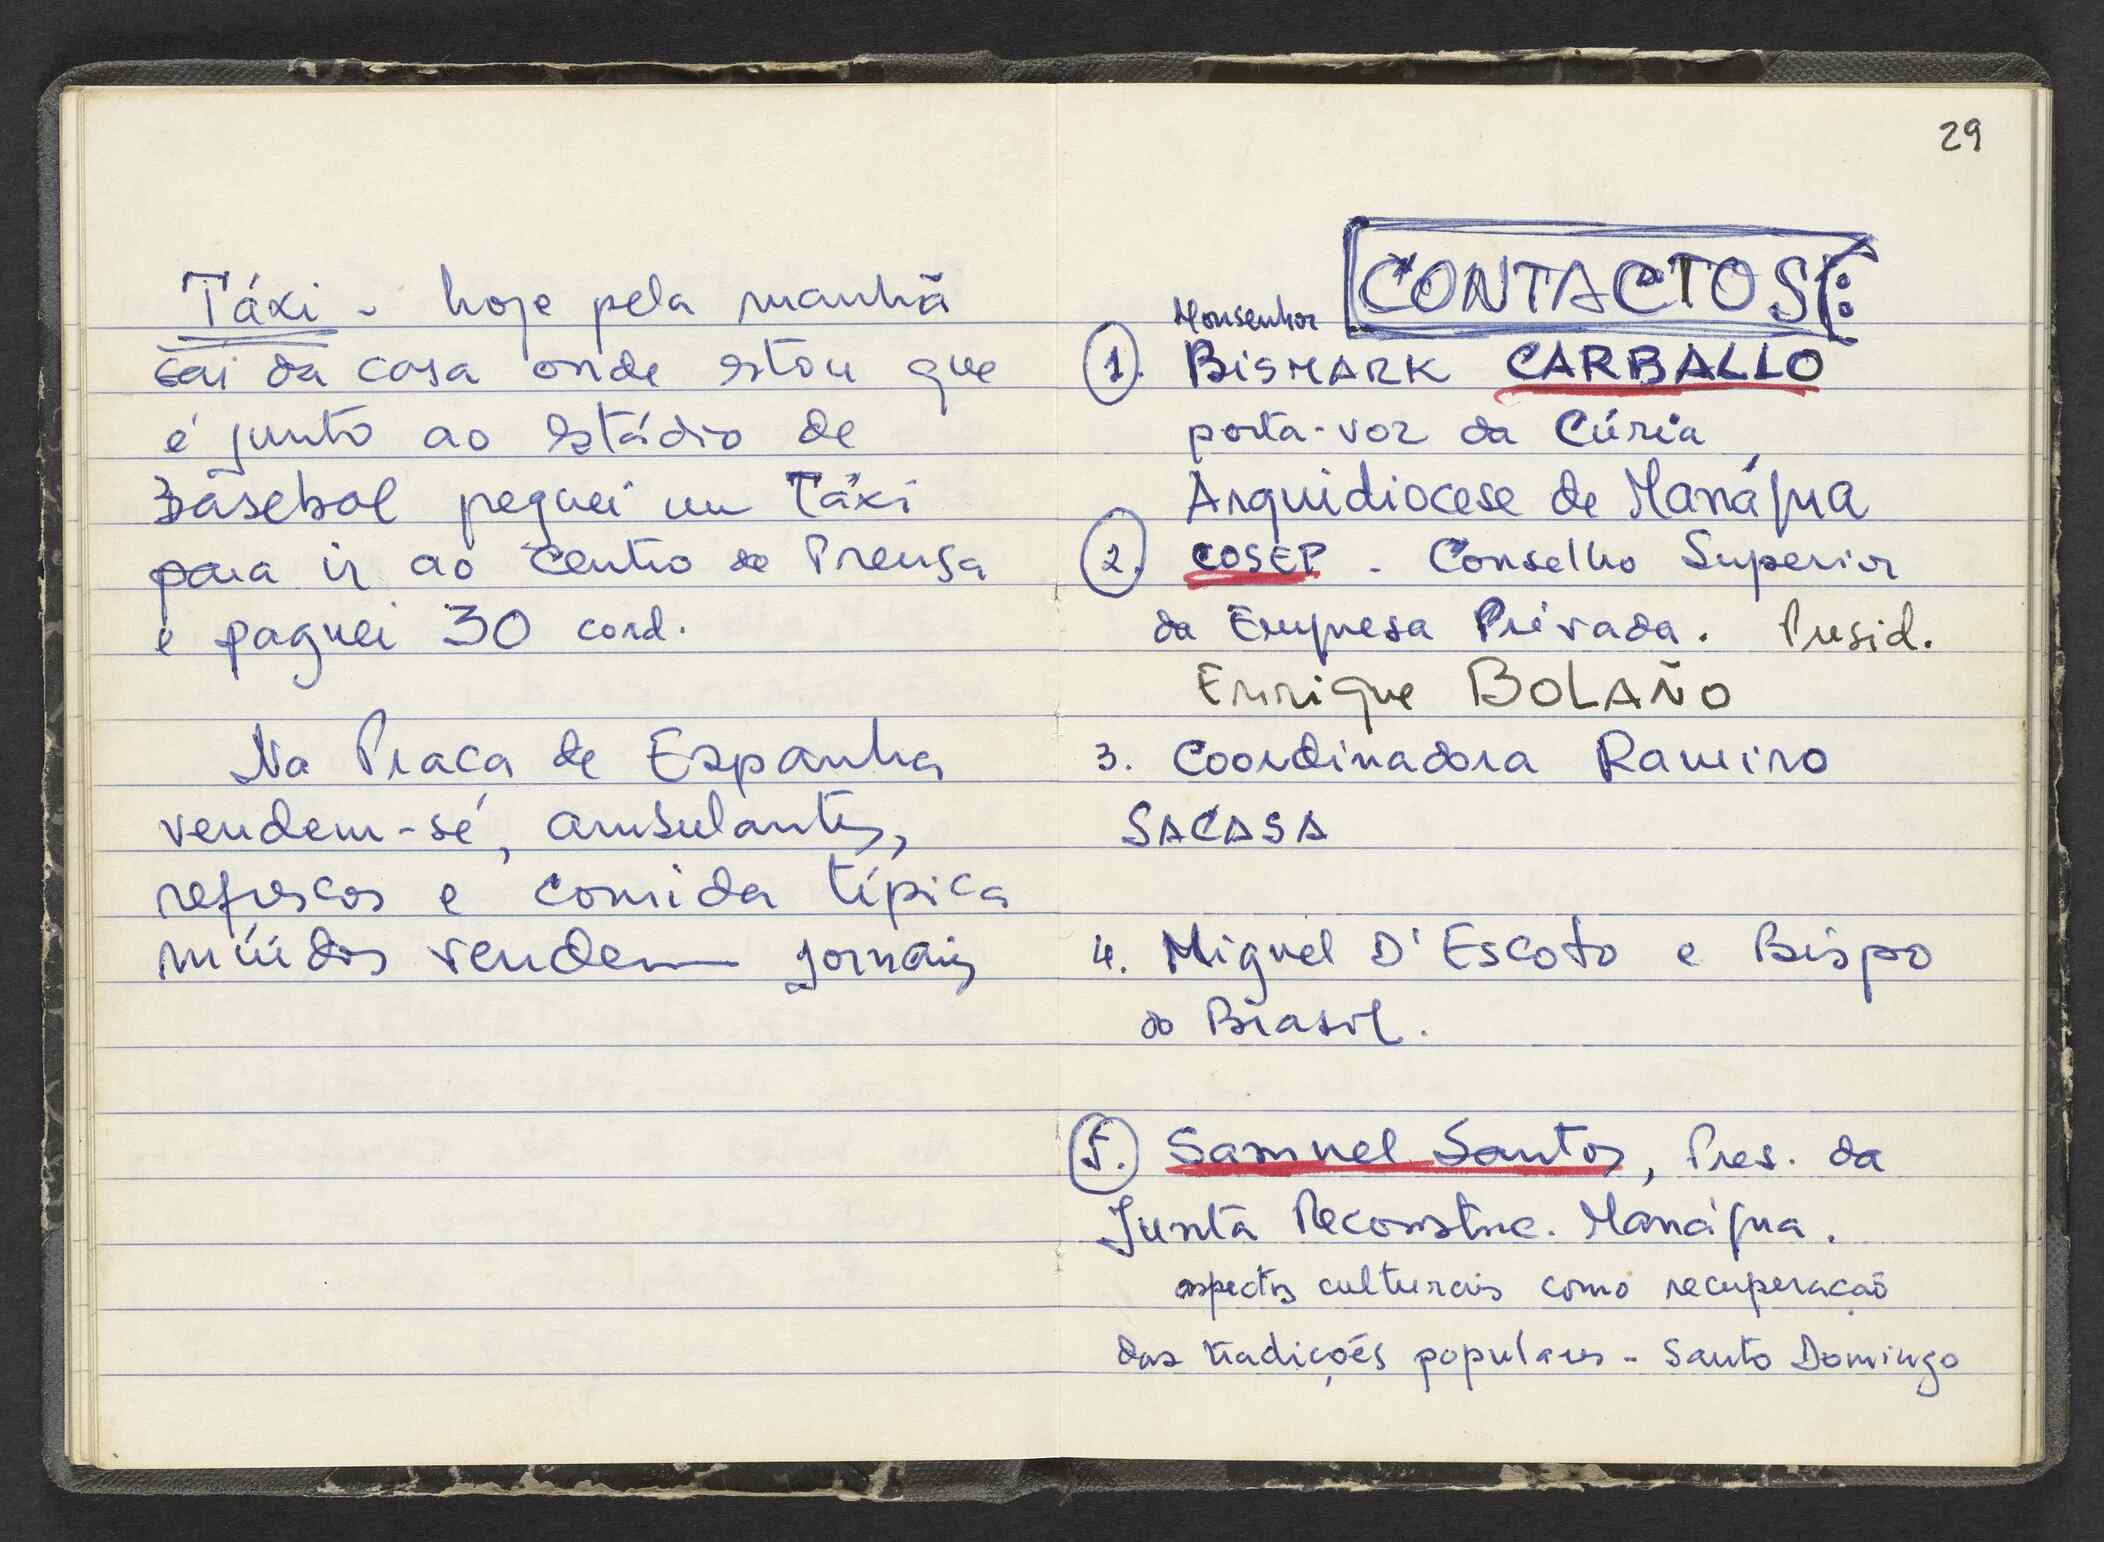 Táxi - hoje pela manhã
saí da casa onde estou que
é junto ao estádio de
Basebol peguei um Táxi
para ir ao Centro de Prensa
e paguei 30 cord.
Na Praca de Espanha
vendem-se, ambulantes,
refrescos e comida típica
miúdos vendem jornais
29
CONTACTOS:
Monsenhor
1. BISMARK CARBALLO
porta-voz da Cúria
Arquidiocese de Manágua
2. COSEP - Conselho Superior
da Empresa Privada. Presid.
Enrique BOLAÑO
3. Coordinadora Ramiro
SACASA
4. Miguel D'Escoto e Bispo
do Brasil.
5. Samuel Santos, Pres. da
Junta Reconstruc. Manágua.
aspectos culturais como recuperacaõ
das tradições populares - Santo Domingo